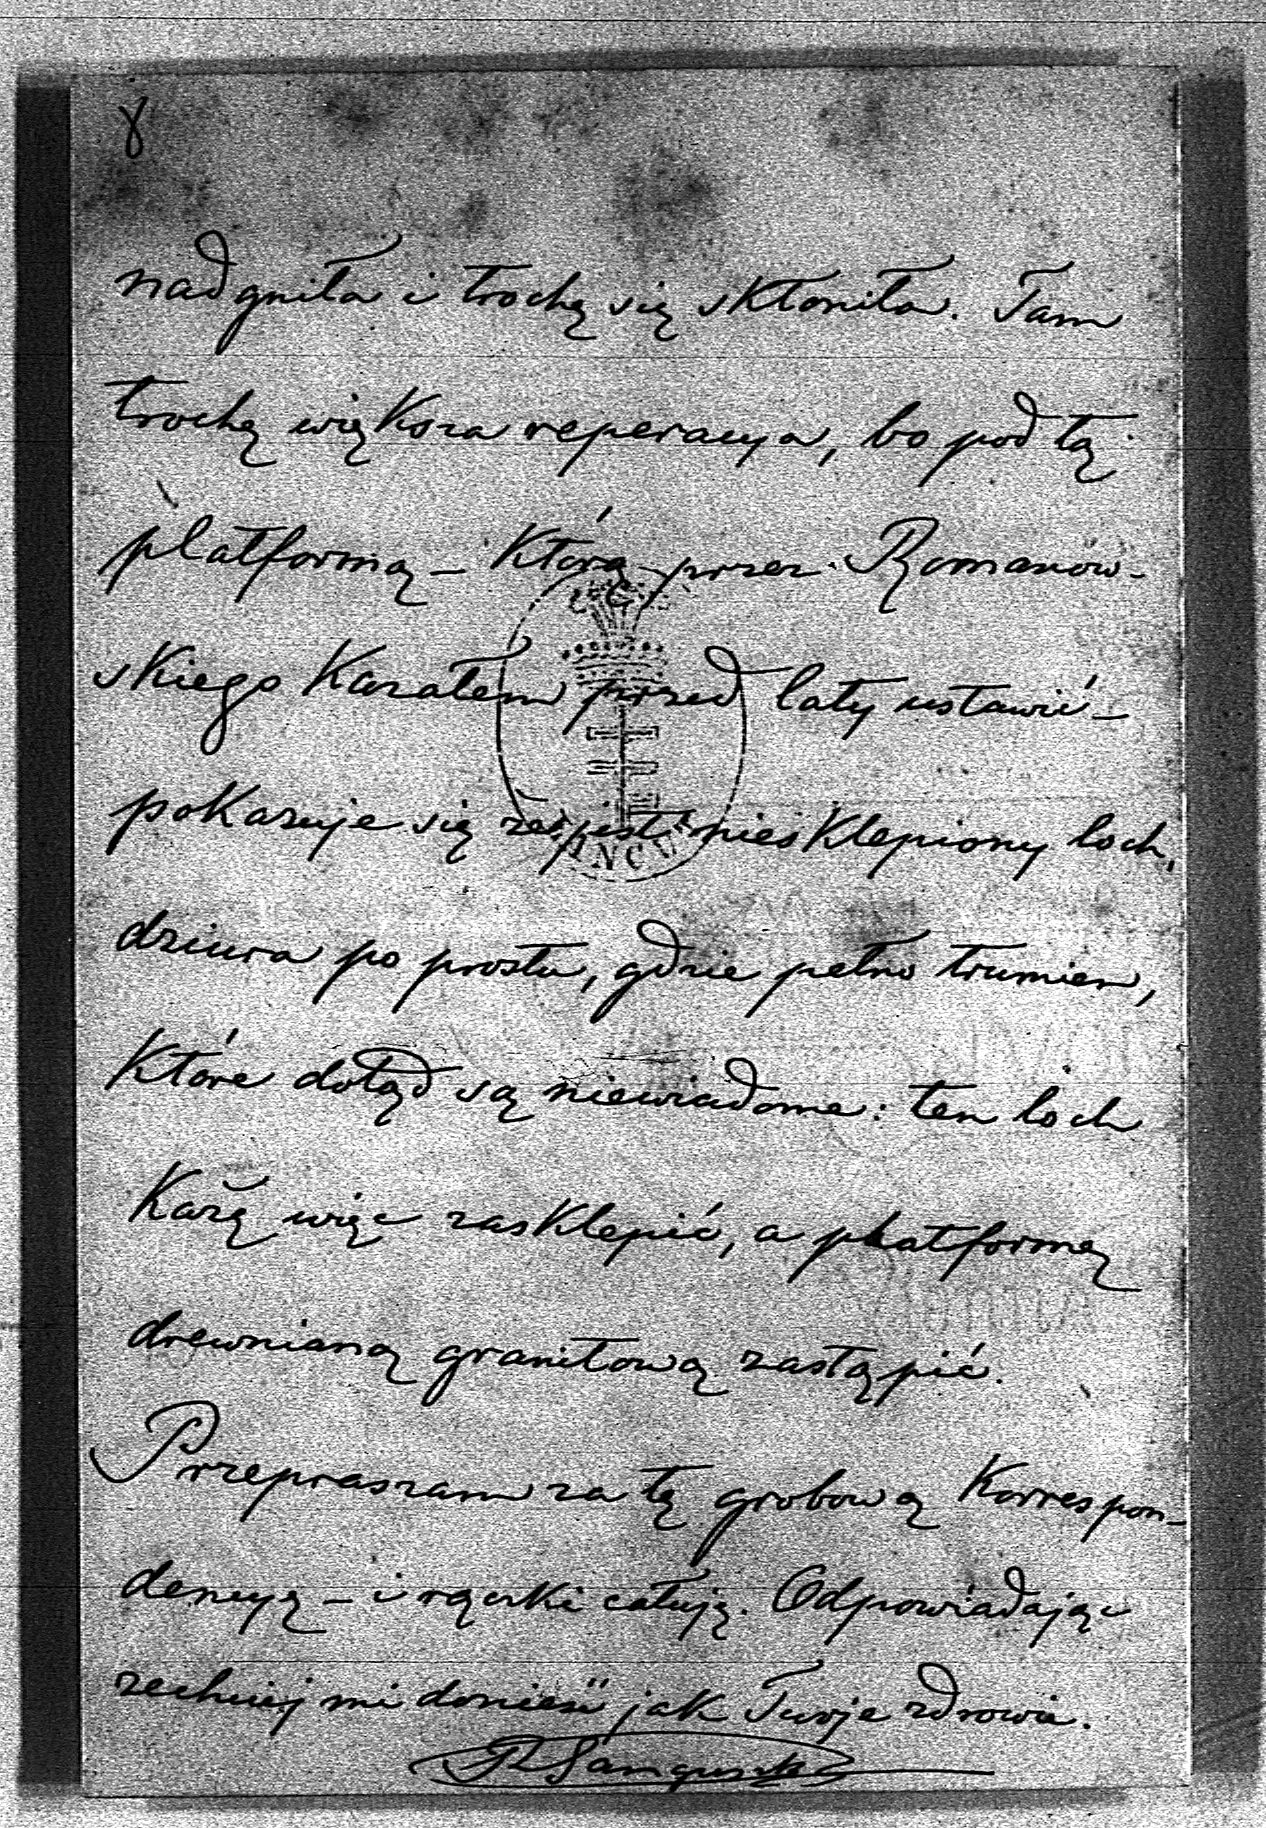 8
nadgniła i trochę się skłoniła. Tam
trochę większa reperacya, bo pod tą
platformą – którą przez Romanow-
skiego kazałem przed laty ustawić –
pokazuje się że jest niesklepiony loch,
dziura po prostu, gdzie pełno trumien,
które dotąd są niewiadome: ten loch
każę więc zasklepić, a platformę
drewnianą granitową zastąpić.
Przepraszam za tę grobową korrespon-
dencyę – i rączki całuję. Odpowiadając
zechciej mi donieść jak Twoje zdrowie.
R Sanguszko